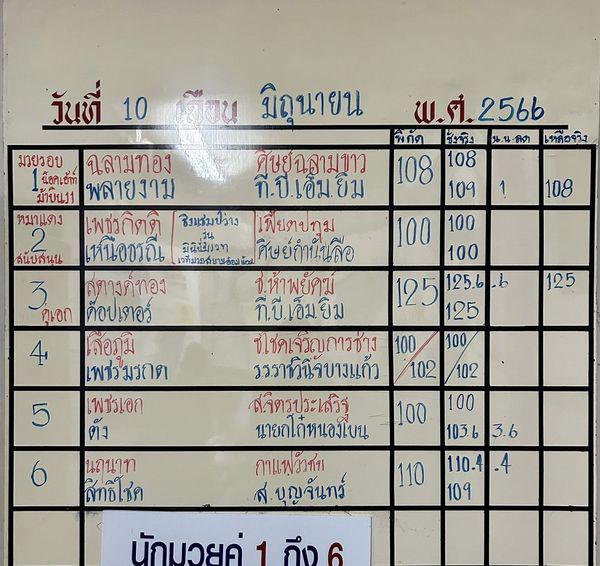 วันที่ 10 เดือน มิถุนายน พ.ศ. 2566
พิกัด ชั่งจริง น.น.ลด เหลือจริง
มวยรอบ ฉลามทอง ศิษย์ฉลามขาว 108 108
1 น็อคเอ้าท์ พลายงาม ที.บี.เอ็ม.ยิม 109 1 108
ม้าบิน11
หมาแดง เพชรกิตติ ชิงแชมป์ว่าง เฟี้ยตปทุม 100 100
2 เหนือธรณี รุ่น ศิษย์กำนันลือ 100
สนับสนุน
3 สตางค์ทอง ช.ห้าพยัคฆ์ 125 125.6 .6 125
คู่เอก ค๊อปเตอร์ ที.บี.เอ็ม.ยิม 125
4 เสือภูมิ ช.โชคเจริญการช่าง 100/102 100/102
เพชรมรกต รร.ราชวินิจบางแก้ว
5 เพชรเอก ส.จิตรประเสริฐ 100 100
ตัง นายกไก่หนองใบน 103.6 3.6
6 นถนาท กาแฟวัวชน 110 110.4 .4
สิทธิโชค ส.บุญจันทร์ 109
นักมวยคู่ 1 ถึง 6